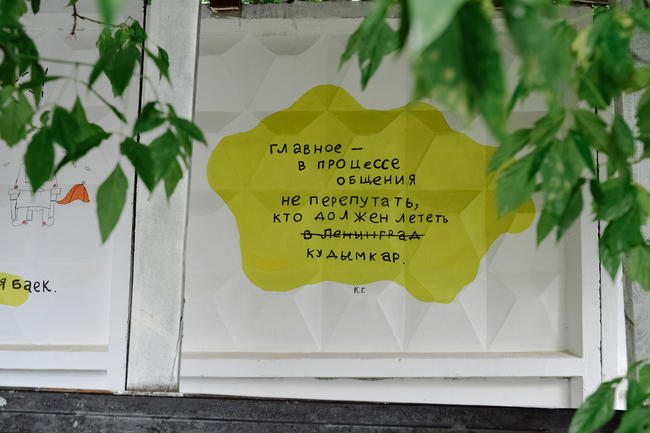 главное —
в процессе
общения
не перепутать,
кто должен лететь
в Ленинград
кудымкар.
К.Г.
я баек.